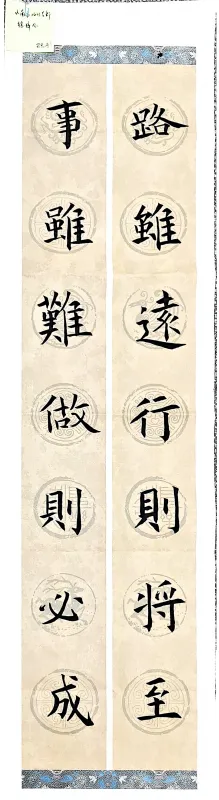 路雖遠行則将至
事雖難做則必成